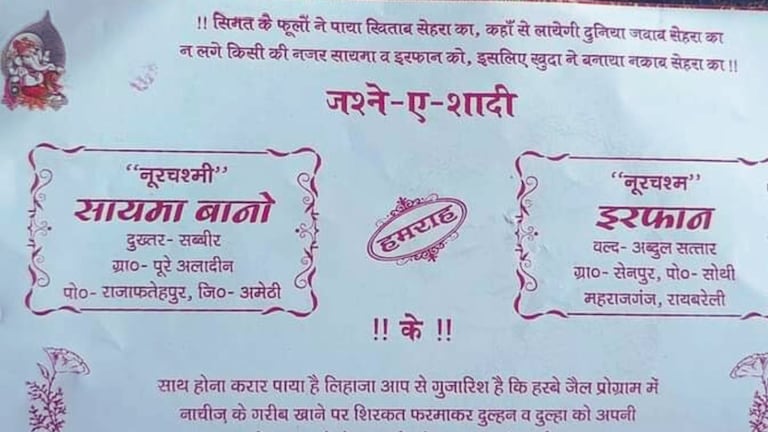 !! सिमत के फूलों ने पाया खिताब सेहरा का, कहाँ से लायेगी दुनिया जवाब सेहरा का
न लगे किसी की नजर सायमा व इरफान को, इसलिए खुदा ने बनाया नकाब सेहरा का !!
जश्ने-ए-शादी
“नूरचश्मी”
सायमा बानो
दुख्तर- सब्बीर
ग्रा०- पूरे अलादीन
पो०- राजाफतेहपुर, जि०- अमेठी
हमराह
“नूरचश्म”
इरफान
वल्द- अब्दुल सत्तार
ग्रा०- सेनपुर, पो०- सोथी
महराजगंज, रायबरेली
!! के !!
साथ होना करार पाया है लिहाजा आप से गुजारिश है कि हस्बे जैल प्रोग्राम में
नाचीज़ के गरीब खाने पर शिरकत फरमाकर दुल्हन व दुल्हा को अपनी